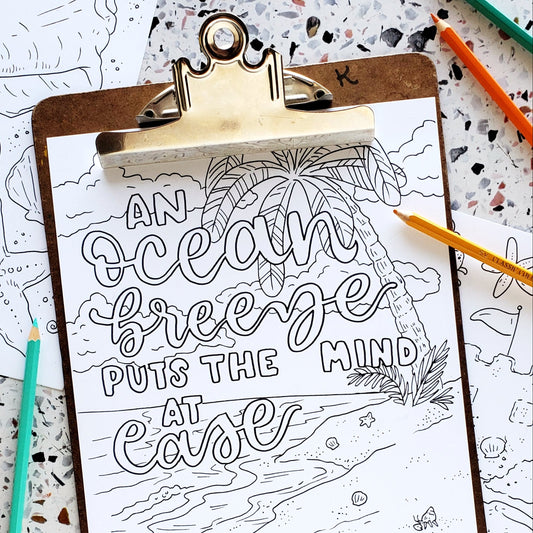 K
AN
ocean
breeze
PUTS THE MIND
AT
ease